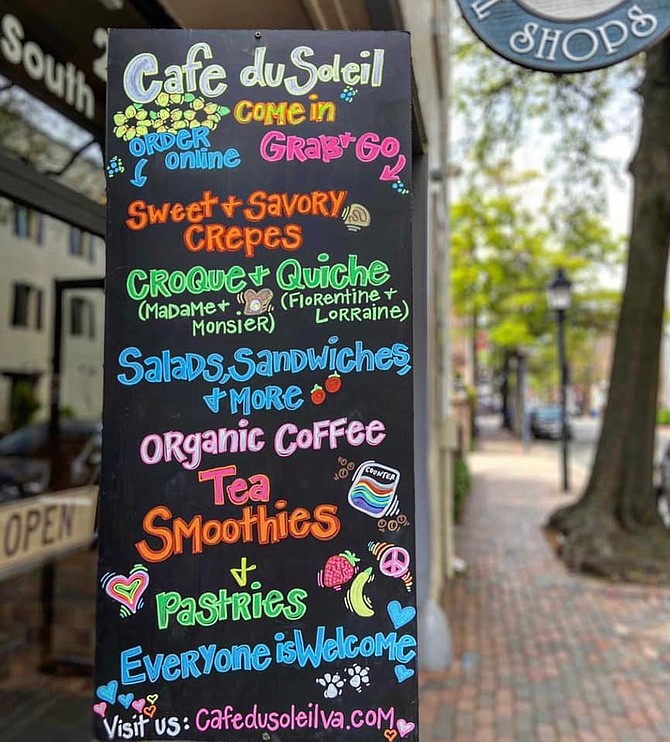 South
SHOPS
Cafe du Soleil
COMe in
ORDeR online
GRaB + GO
Sweet + SavoRy
CRepes
CROQue + Quiche
(MaDaMe + Monsier)
(Florentine + Lorraine)
Salads, Sandwiches,
+ MoRe
ORganic CoFFee
Tea
COUNTER
SMoothies
+
PastRies
EveRyone is Welcome
Visit us: CafedusoleilVa.com
OPEN